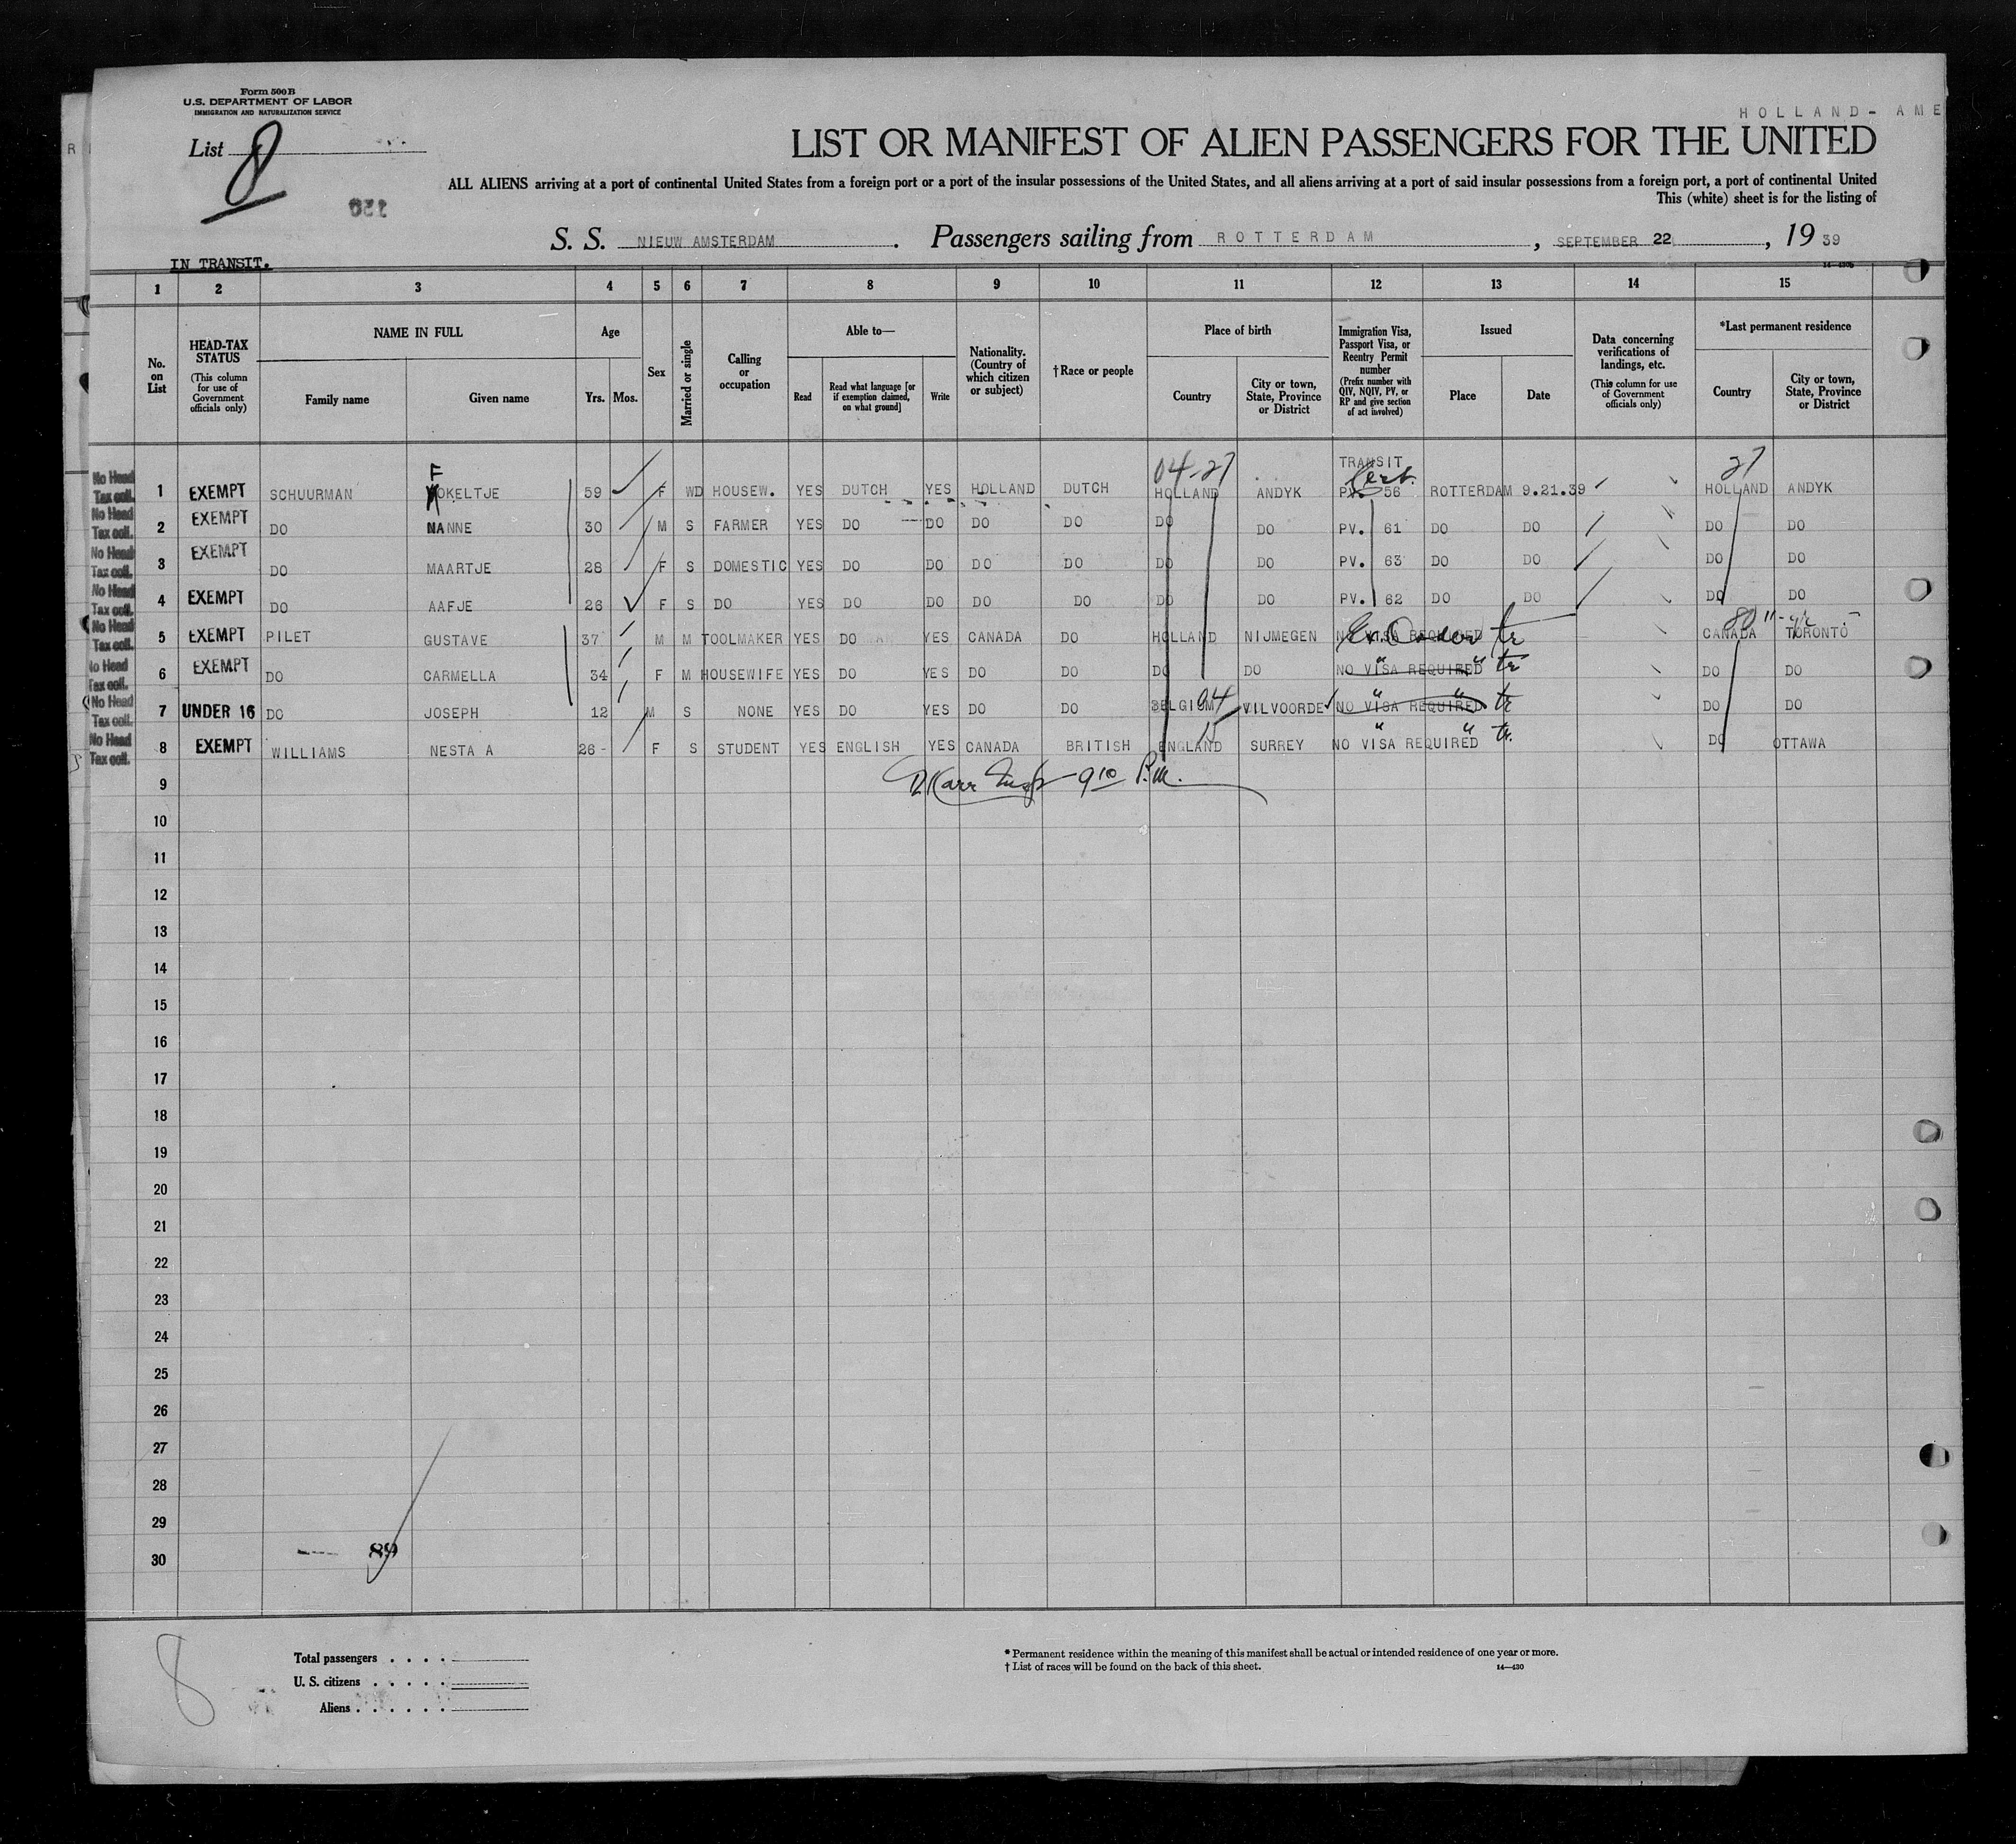 HOLLAND- AME
Form 500B
U.S. DEPARTMENT OF LABOR
IMMIGRATION AND NATURALIZATION SERVICE
List 8
LIST OR MANIFEST OF ALIEN PASSENGERS FOR THE UNITED
ALL ALIENS arriving at a port of continental United States from a foreign port or a port of the insular possessions of the United States, and all aliens arriving at a port of said insular possessions from a foreign port, a port of continental United
This (white) sheet is for the listing of
S. S. NIEUW AMSTERDAM. Passengers sailing from ROTTERDAM, SEPTEMBER 22, 19 39
IN TRANSIT.
1 2 3 4 5 6 7 8 9 10 11 12 13 14 15
No. on List
HEAD-TAX STATUS (This column for use of Government officials only)
NAME IN FULL
Family name
Given name
Age
Yrs. Mos.
Sex
Married or single
Calling or occupation
Able to—
Read
Read what language [or if exemption claimed, on what ground]
Write
Nationality. (Country of which citizen or subject)
†Race or people
Place of birth
Country
City or town, State, Province or District
Immigration Visa, Passport Visa, or Reentry Permit number (Prefix number with QIV, NQIV, PV, or RP and give section of act involved)
Issued
Place
Date
Data concerning verifications of landings, etc. (This column for use of Government officials only)
*Last permanent residence
Country
City or town, State, Province or District
F 04-27 TRANSIT Cert. 27
No Head Tax coll. 1 EXEMPT SCHUURMAN OKELTJE 59 F WD HOUSEW. YES DUTCH YES HOLLAND DUTCH HOLLAND ANDYK PV. 56 ROTTERDAM 9.21.39 HOLLAND ANDYK
No Head Tax coll. 2 EXEMPT DO NANNE 30 M S FARMER YES DO DO DO DO DO DO PV. 61 DO DO DO DO
No Head Tax coll. 3 EXEMPT DO MAARTJE 28 F S DOMESTIC YES DO DO DO DO DO DO PV. 63 DO DO DO DO
No Head Tax coll. 4 EXEMPT DO AAFJE 26 F S DO YES DO DO DO DO DO DO PV. 62 DO DO DO DO
No Head Tax coll. 5 EXEMPT PILET GUSTAVE 37 M M TOOLMAKER YES DO YES CANADA DO HOLLAND NIJMEGEN NO VISA REQUIRED Ex. Order tr 80 CANADA TORONTO
No Head Tax coll. 6 EXEMPT DO CARMELLA 34 F M HOUSEWIFE YES DO YES DO DO DO DO NO VISA REQUIRED " " tr DO DO
No Head Tax coll. 7 UNDER 16 DO JOSEPH 12 M S NONE YES DO YES DO DO BELGIUM 04 VILVOORDE NO VISA REQUIRED " " tr DO DO
No Head Tax coll. 8 EXEMPT WILLIAMS NESTA A 26 - F S STUDENT YES ENGLISH YES CANADA BRITISH ENGLAND 15 SURREY NO VISA REQUIRED " " tr. DO OTTAWA
9 Karr 9 10 P.M.
10
11
12
13
14
15
16
17
18
19
20
21
22
23
24
25
26
27
28
29
30 89
8
Total passengers
U. S. citizens
Aliens
* Permanent residence within the meaning of this manifest shall be actual or intended residence of one year or more.
† List of races will be found on the back of this sheet. 14—430